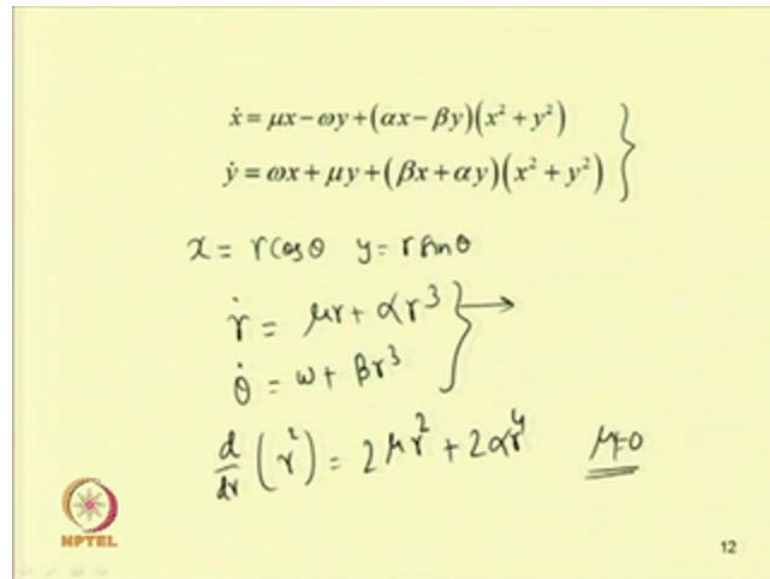 ẋ = μx − ωy + (αx − βy)(x² + y²)
ẏ = ωx + μy + (βx + αy)(x² + y²)
x = r cos θ y = r sin θ
ṙ = μr + αr³
θ̇ = ω + βr³
d/dr (r²) = 2μr² + 2αr⁴ μ≠0
NPTEL
12